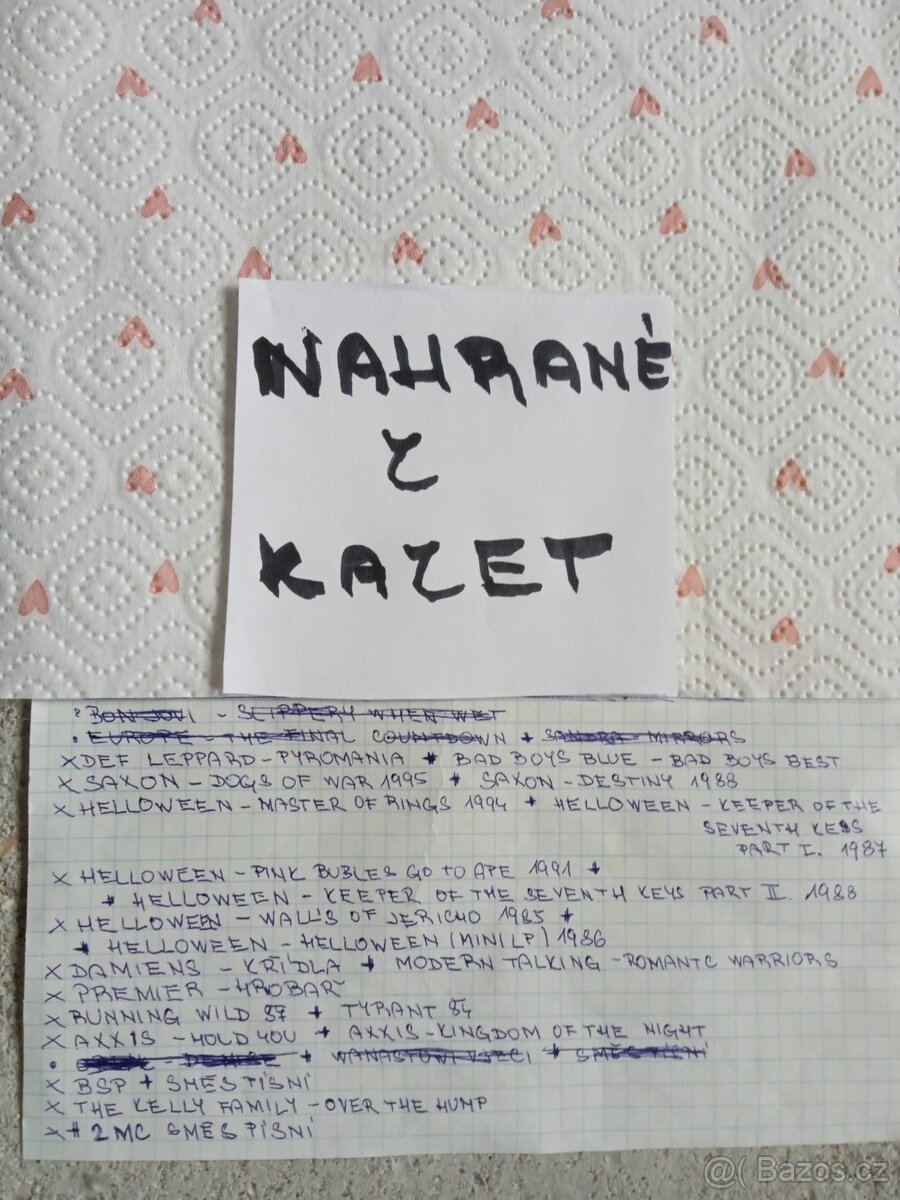 NAHRANÉ
Z
KAZET
BON JOVI - SLIPPERY WHEN WET
EUROPE - THE FINAL COUNTDOWN + SANDRA - MIRRORS
X DEF LEPPARD - PYROMANIA + BAD BOYS BLUE - BAD BOYS BEST
X SAXON - DOGS OF WAR 1995 + SAXON - DESTINY 1988
X HELLOWEEN - MASTER OF RINGS 1994 + HELLOWEEN - KEEPER OF THE
SEVENTH KEYS
PART I. 1987
X HELLOWEEN - PINK BUBLES GO TO APE 1991 +
+ HELLOWEEN - KEEPER OF THE SEVENTH KEYS PART II. 1988
X HELLOWEEN - WALLS OF JERICHO 1985 +
+ HELLOWEEN - HELLOWEEN (MINI LP) 1986
X DAMIENS - KŘÍDLA + MODERN TALKING - ROMANTC WARRIORS
X PREMIER - HROBAŘ
X RUNNING WILD 87 + TYRANT 84
X AXXIS - HOLD YOU + AXXIS - KINGDOM OF THE NIGHT
+ WANASTOWI VJECI + SMĚS PÍSNÍ
X BSP + SMĚS PÍSNÍ
X THE KELLY FAMILY - OVER THE HUMP
X # 2 MC SMĚS PÍSNÍ
@( Bazos.cz